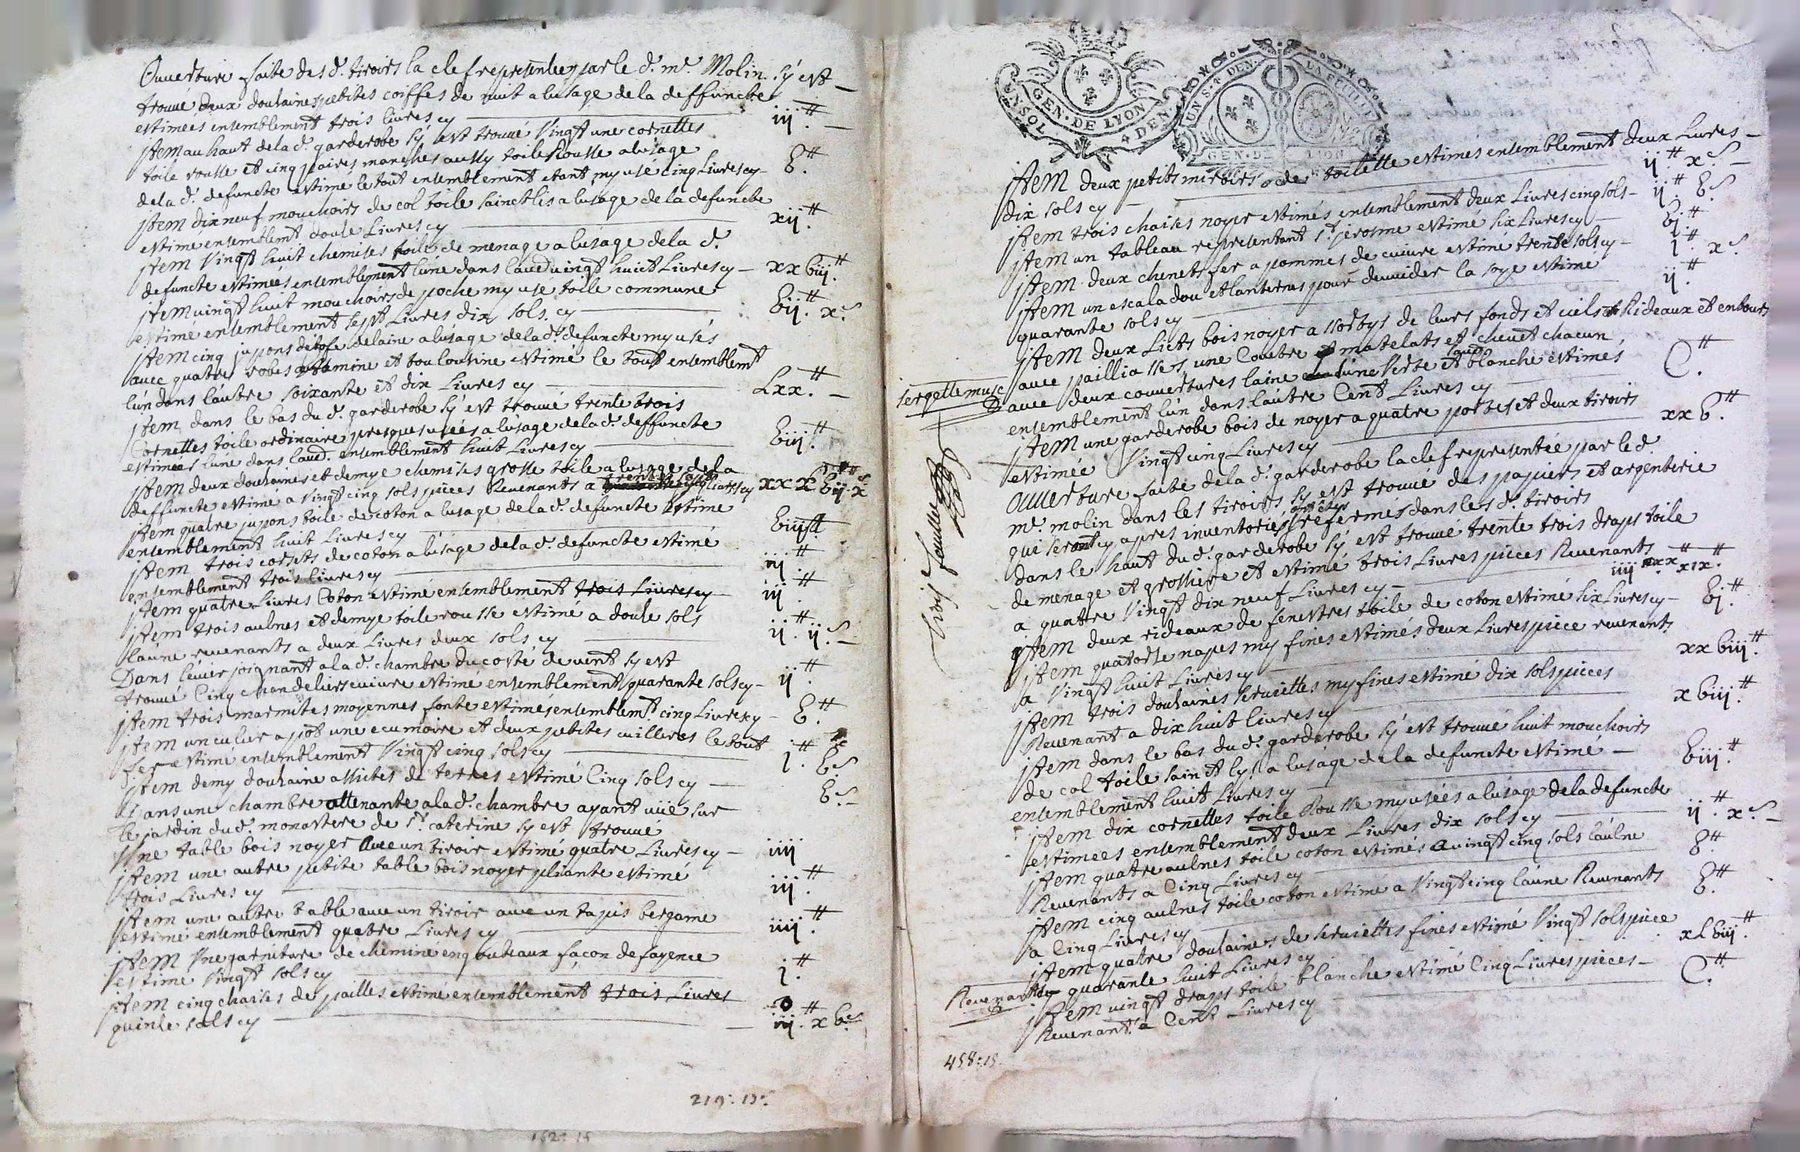 Ouverture faite desd. tiroirs la clef representée par le d. me. Molin sy est
trouvé deux douzaines petites coiffes de nuit a lusage de la deffuncte
estimées ensemblement trois livres cy iij.tt
Jtem au haut de la d. garderobe sy est trouvé Vingt une cornettes
toile rousse et cinq paires manches aussy toile Rousse a lusage
de la d. defuncte estimé le tout ensemblement etant my usé cinq Livres cy 6.tt
Jtem dix neuf mouchoirs de col toile sainct lis a lusage de la defuncte
estimé ensemblemt douze Livres cy xij.tt
Jtem Vingt huit chemises toile de menage a lusage de la d.
defuncte estimées ensemblement lune dans laud. vingt huit Livres cy xx biij.tt
Jtem vingt huit mouchoirs de poche my usé toile commune
estimé ensemblement sept Livres dix sols cy bij.tt x s
Jtem cinq juppons de laine a lusage de la d. defuncte my usés
avec quatre robes etamine et toulousine estimé le tout ensemblemt
lun dans lautre soixante et dix Livres cy Lxx.tt
Jtem dans le bas du d. garderobe sy est trouvé trente trois
Cornettes toile ordinaire presque usées a lusage de la d. deffuncte
estimées lune dans laud. ensemblement huit Livres cy biij.tt
Jtem deux douzaines et demye chemises grosse toile a lusage de la
deffuncte estimé a Vingt cinq sols pièces Revenants a xxx bij.tt x
Jtem quatre juppons toile de coton a lusage de la d. defuncte Estimé
ensemblement huit Livres cy biij tt
Jtem trois corsets de coton a lusage de la d. defuncte estimé
ensemblement trois livres cy iij.tt
Jtem quatre Livres Coton estimé ensemblement trois Livres cy iij.tt
Jtem trois aulnes et demye toile rousse estimé a douze sols
laune revenants a deux Livres deux sols cy ij.tt ij s
Dans levier joignant a la d. chambre du costé de vent sy est
trouvé Cinq chandeliers cuivre estimé ensemblement quarante sols cy ij.tt
Jtem trois marmites moyennes fonte estimé ensemblemt cinq Livres cy 6.tt
Jtem un cuiler a pot une ecumoire et deux petites cuilleres le tout
fer estimé ensemblement Vingt cinq sols cy j.tt 6 s
Jtem demy douzaine assiettes de terres estimé Cinq sols cy 6 s
Dans une chambre attenante a la d. chambre ayant vue sur
le jardin du d. monastere de ste caterine sy est trouvé
Une table bois noyer avec un tiroir estimé quatre Livres cy iiij
Jtem une autre petite table bois noyer pliante estimé
trois Livres cy iij.tt
Jtem une autre table avec un tiroir avec un tapis bergame
estimé ensemblement quatre Livres cy iiij.tt
Jtem Une garniture de cheminé en gouteaux façon de fayence
estimé Vingt sols cy j.tt
Jtem cinq chaises de pailles estimé ensemblement trois Livres
quinze sols cy iij.tt x b s
219: 15
162: 15
GEN. DE LYON
GEN. DE LYON
Jtem deux petits miroirs de toilette estimés ensemblement deux Livres
dix sols cy ij tt x s
Jtem trois chaises noyer estimés ensemblement deux Livres cinq sols ij.tt 6 s
Jtem un tableau representant st jerosme estimé six Livres cy bj.tt
Jtem deux chenets fer a pommes de cuivre estimé trente sols cy j.tt x s
Jtem un escaladou et lanternes pour devuider la soye estimé
quarante sols cy ij.tt
Jtem deux Licts bois noyer assortys de leurs fonds et ciels Rideaux et entours
sergette musc
avec paillasses, une Coutre matelats et chevet chacun
avec deux couvertures laine une verte et blanche estimés
ensemblement lun dans lautre Cent Livres cy C.tt
Jtem une garderobe bois de noyer a quatre portes et deux tiroirs
estimée Vingt cinq Livres cy xx 6.tt
Ouverture faite de la d. garderobe la clef representée par le d.
me. molin dans les tiroirs sy est trouvé des papiers et argenterie
qui seront cy apres inventoriés refermés dans lesd. tiroirs
dans le haut du d. garderobe sy est trouvé trente trois draps toile
de menage et grossiere et estimé trois Livres pièces Revenants
a quattre Vingt dix neuf Livres cy iiij xx xix.tt
Jtem deux rideaux de fenestres toile de coton estimé six Livres cy bj.tt
Jtem quatorze napes my fines estimés deux Livres pièce revenants
a Vingt huit Livres cy xx biij.tt
Jtem trois douzaines serviettes my fines estimé dix sols pièces
Revenant a dix huit livres cy x biij.tt
Jtem dans le bas du d. garderobe sy est trouvé huit mouchoirs
de col toile sainct lys a lusage de la defuncte estimé
ensemblement huit Livres cy biij.tt
Jtem dix cornettes toile Rousse my usées a lusage de la defuncte
estimées ensemblement deux Livres dix sols cy ij.tt x s
Jtem quatre aulnes toile coton estimés a vingt cinq sols laulne
Revenants a Cinq Livres cy 6.tt
Jtem cinq aulnes toile coton estimé a Vingt cinq laune Revenants
a Cinq Livres cy 6.tt
Jtem quatre douzaines de serviettes fines estimé Vingt sols pièce
Revenants quarante huit Livres cy xL biij.tt
Jtem vingt draps toile blanche estimé Cinq Livres pièces
Revenant a Cent Livres cy C.tt
458: 15